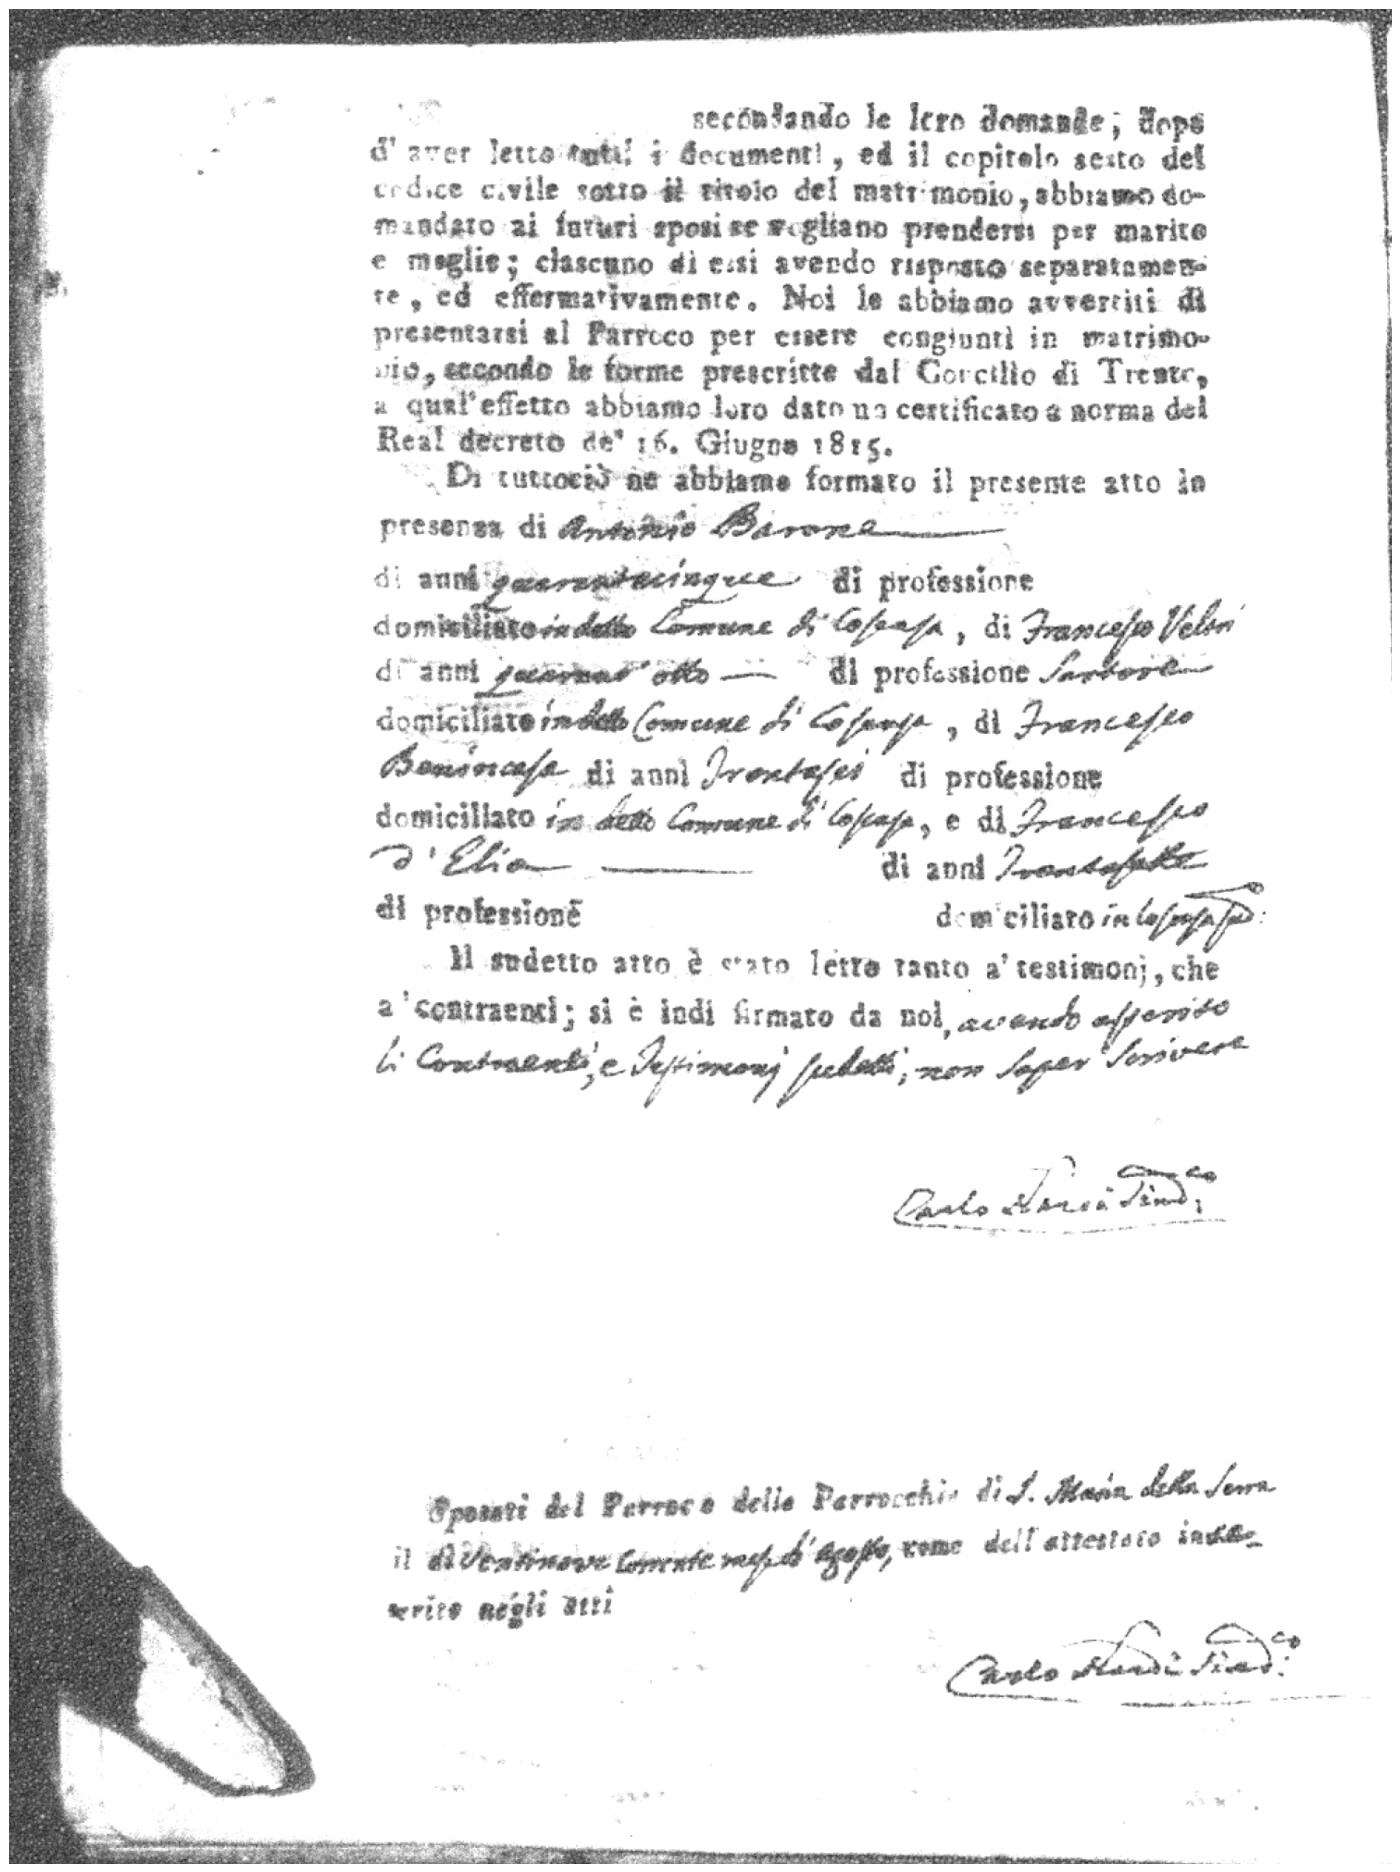 secondando le loro domande; dopo
d'aver letto tutti i documenti, ed il copitolo sesto del
codice civile sotto il titolo del matrimonio, abbiamo do-
mandato ai futuri sposi se vogliano prendersi per marito
e moglie; ciascuno di essi avendo risposto separatamen-
te, ed effermativamente. Noi le abbiamo avvertiti di
presentarsi al Parroco per essere congiunti in matrimo-
nio, secondo le forme prescritte dal Concilio di Trento,
a qual'effetto abbiamo loro dato un certificato a norma del
Real decreto de' 16. Giugno 1815.
Di tuttociò ne abbiamo formato il presente atto in
presenza di Antonio Barone
di anni quarantacinque di professione
domiciliato in detto Comune di Cosenza, di Francesco
di anni quarant'otto di professione Sartore
domiciliato in detto Comune di Cosenza, di Francesco
Benincasa di anni Trentasei di professione
domiciliato in detto Comune di Cosenza, e di Francesco
d'Elia di anni Trentasette
di professione domiciliato in Cosenza
Il sudetto atto è stato letto tanto a' testimonj, che
a' contraenti; si è indi firmato da noi, avendo asserito
li Contraenti, e Testimonj sudetti, non saper scrivere
Carlo Sind.co
Sposati dal Parroco della Parrocchia di S. Maria della Serra
il dì Ventinove Corrente mese di Agosto, come dell'attestato inse-
rito negli atti
Carlo Sind.co